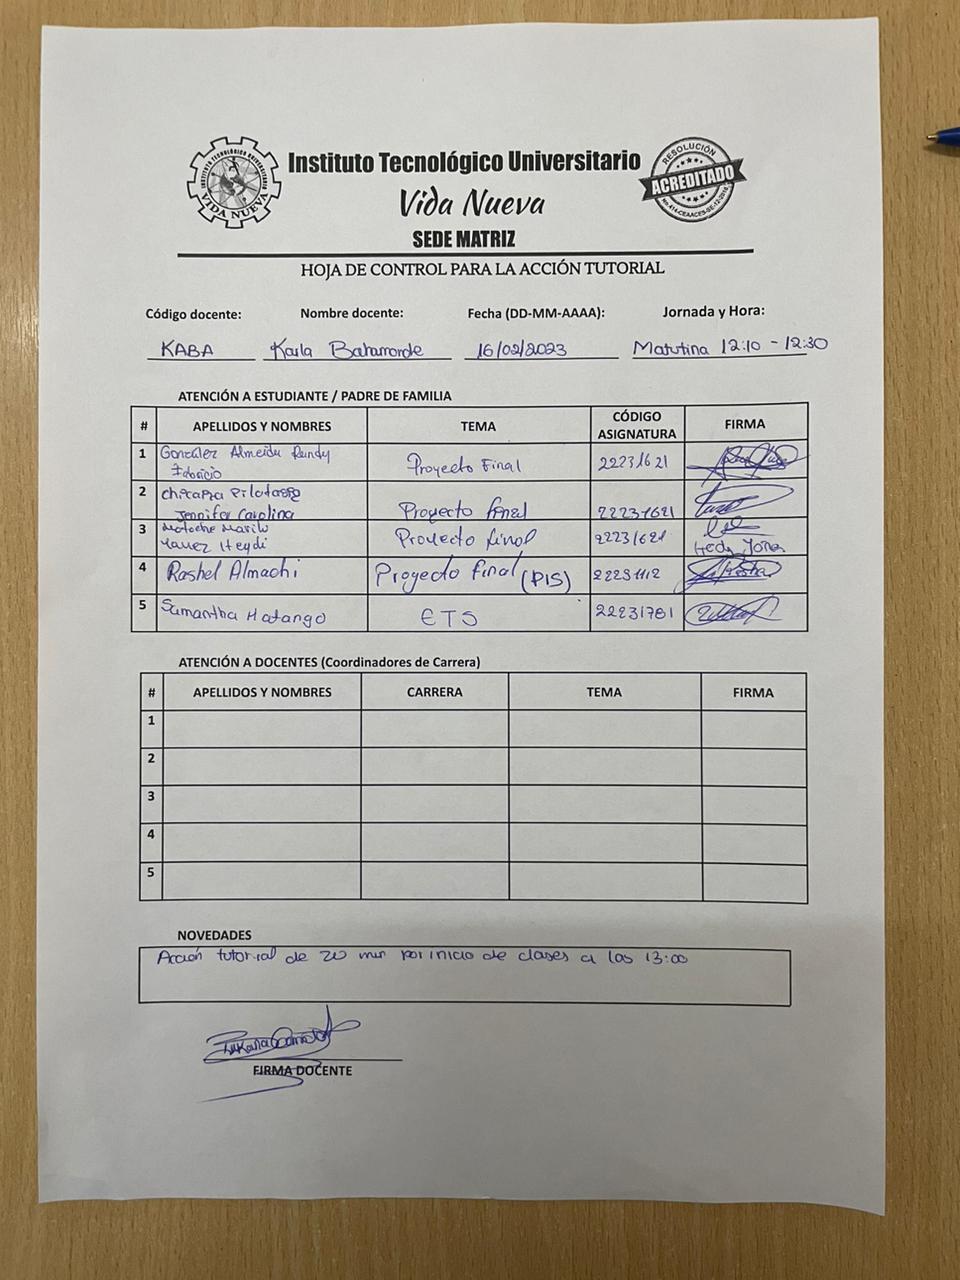 INSTITUTO TECNOLÓGICO UNIVERSITARIO
VIDA NUEVA
Instituto Tecnológico Universitario
Vida Nueva
SEDE MATRIZ
RESOLUCIÓN
ACREDITADO
HOJA DE CONTROL PARA LA ACCIÓN TUTORIAL
Código docente: Nombre docente: Fecha (DD-MM-AAAA): Jornada y Hora:
KABA Karla Bahamonde 16/02/2023 Matutina 12:10 - 12:30
ATENCIÓN A ESTUDIANTE / PADRE DE FAMILIA
# APELLIDOS Y NOMBRES TEMA CÓDIGO ASIGNATURA FIRMA
1 González Almeida Rendy Fabricio Proyecto Final 22231621
2 Jennifer Carolina Proyecto final 22231621
3 Heydi Proyecto final 22231621
4 Rashel Almachi Proyecto Final (PIS) 22231112
5 Samantha Matango ETS 22231781
ATENCIÓN A DOCENTES (Coordinadores de Carrera)
# APELLIDOS Y NOMBRES CARRERA TEMA FIRMA
1
2
3
4
5
NOVEDADES
Acción tutorial de 20 min por inicio de clases a las 13:00
FIRMA DOCENTE